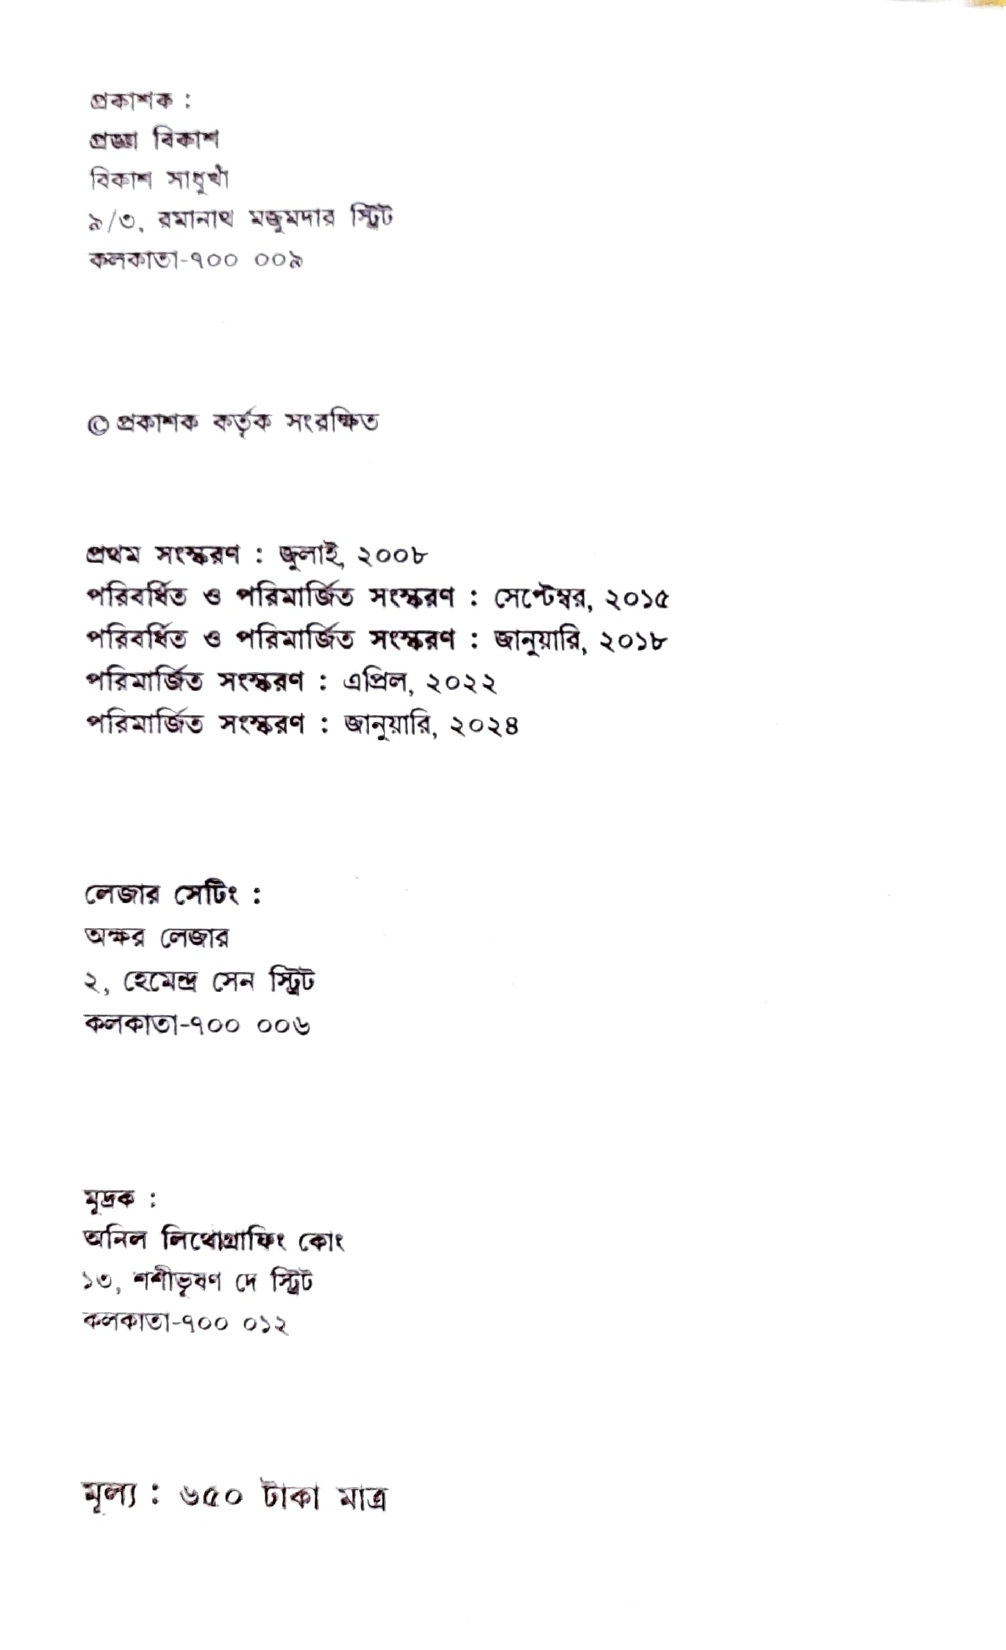 প্রকাশক :
প্রজ্ঞা বিকাশ
বিকাশ সাধুখাঁ
৯/৩, রমানাথ মজুমদার স্ট্রিট
কলকাতা-৭০০ ০০৯
© প্রকাশক কর্তৃক সংরক্ষিত
প্রথম সংস্করণ : জুলাই, ২০০৮
পরিবর্ধিত ও পরিমার্জিত সংস্করণ : সেপ্টেম্বর, ২০১৫
পরিবর্ধিত ও পরিমার্জিত সংস্করণ : জানুয়ারি, ২০১৮
পরিমার্জিত সংস্করণ : এপ্রিল, ২০২২
পরিমার্জিত সংস্করণ : জানুয়ারি, ২০২৪
লেজার সেটিং :
অক্ষর লেজার
২, হেমেন্দ্র সেন স্ট্রিট
কলকাতা-৭০০ ০০৬
মুদ্রক :
অনিল লিথোগ্রাফিং কোং
১৩, শশীভূষণ দে স্ট্রিট
কলকাতা-৭০০ ০১২
মূল্য : ৬৫০ টাকা মাত্র